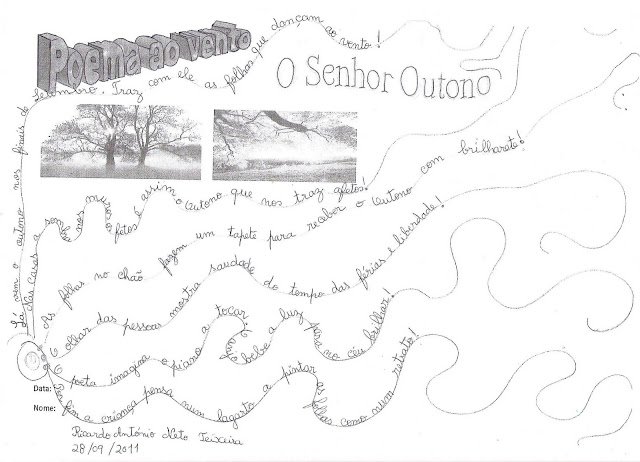 Poema ao vento
O Senhor Outono
Lá vem o outono nos finais de Setembro. Traz com ele as folhas que dançam ao vento!
das casas a nos muros o fetos é assim o Outono que nos traz afetos!
As folhas no chão fazem um tapete para receber o Outono com brilharete!
O olhar das pessoas mostra saudade do tempo das férias e liberdade!
O poeta imagina o piano a tocar, que bebe a luz para no céu brilhar!
Por fim a criança pensa num lagarto a pintar as folhas como num retrato!
Data:
Nome:
Ricardo António Neto Teixeira
28/09/2011